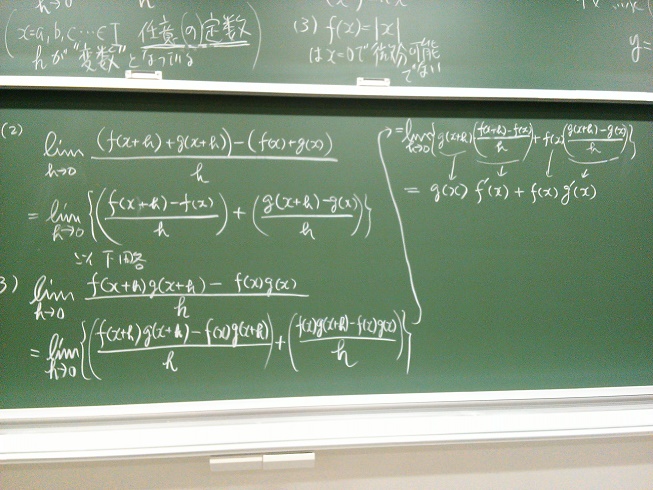 (x=a,b,c…∈I 任意の定数
hが"変数"となっている)
(3) f(x)=|x|
はx=0で微分可能
でない
y=
(2) lim_{h→0} \frac{(f(x+h)+g(x+h))-(f(x)+g(x))}{h}
= lim_{h→0} {(\frac{f(x+h)-f(x)}{h}) + (\frac{g(x+h)-g(x)}{h})}
以下同各
3) lim_{h→0} \frac{f(x+h)g(x+h) - f(x)g(x)}{h}
= lim_{h→0} {(\frac{f(x+h)g(x+h)-f(x)g(x+h)}{h}) + (\frac{f(x)g(x+h)-f(x)g(x)}{h})}
= lim_{h→0} {g(x+h)(\frac{f(x+h)-f(x)}{h}) + f(x)(\frac{g(x+h)-g(x)}{h})}
= g(x) f'(x) + f(x) g'(x)